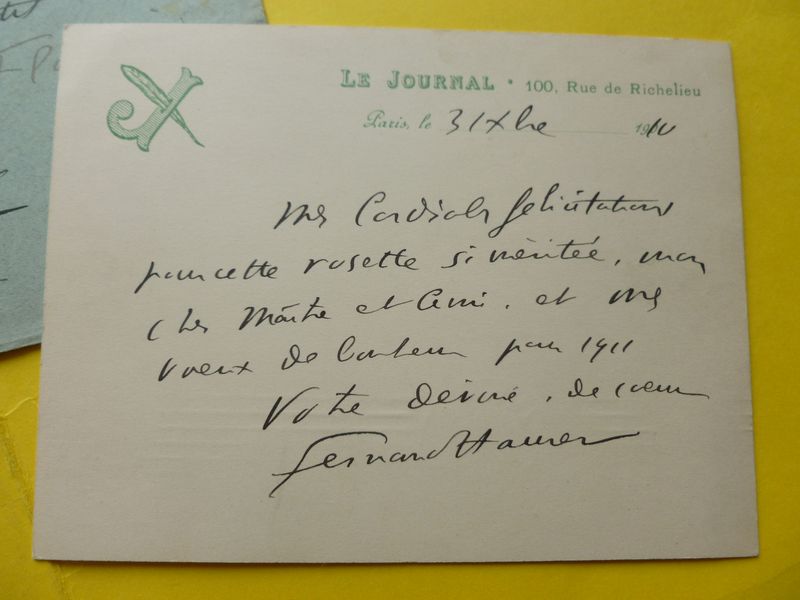 LE JOURNAL • 100, Rue de Richelieu
Paris, le 31 Xbre 1910
Mes Cordiales félicitations
pour cette rosette si méritée, mon
cher Maître et Ami, et mes
voeux de bonheur pour 1911
Votre dévoué, de coeur
Fernand Hauser